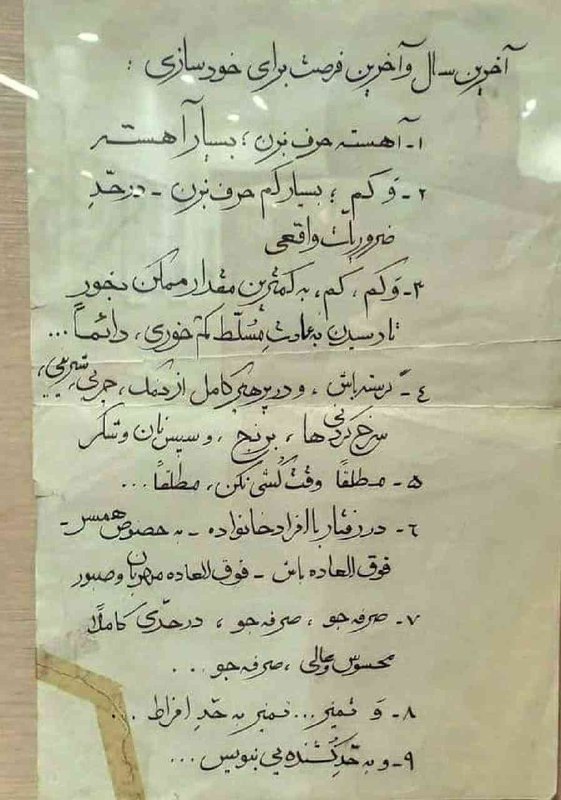 آخرین سال و آخرین فرصت برای خودسازی :
۱- آهسته حرف بزن ؛ بسیار آهسته
۲- وَ کم ؛ بسیار کم حرف بزن - در حدِّ
ضروریّات واقعی
۳- وَ کم ، کم ، به کمترین مقدار ممکن بخور
تا رسیدن به عادتِ مُسلّط کم خوری ، دائماً ...
۴- گرسنه باش ، و در پرهیز کامل از نمک ، چربی ، شیرینی ،
سرخ کردنی ها ، برنج ، و سپس نان و شکر
۵- مطلقاً وقت کُشی نکن ، مطلقاً ...
۶- در رفتار با افراد خانواده - به خصوص همسر -
فوق العاده باش - فوق العاده مهربان و صبور
۷- صرفه جو ، صرفه جو ، در حدّی کاملاً
محسوس و عالی ، صرفه جو ...
۸- وَ تمیز ... تمیز به حدِ افراط ...
۹- و به حّدِ کُشنده یی بنویس ...